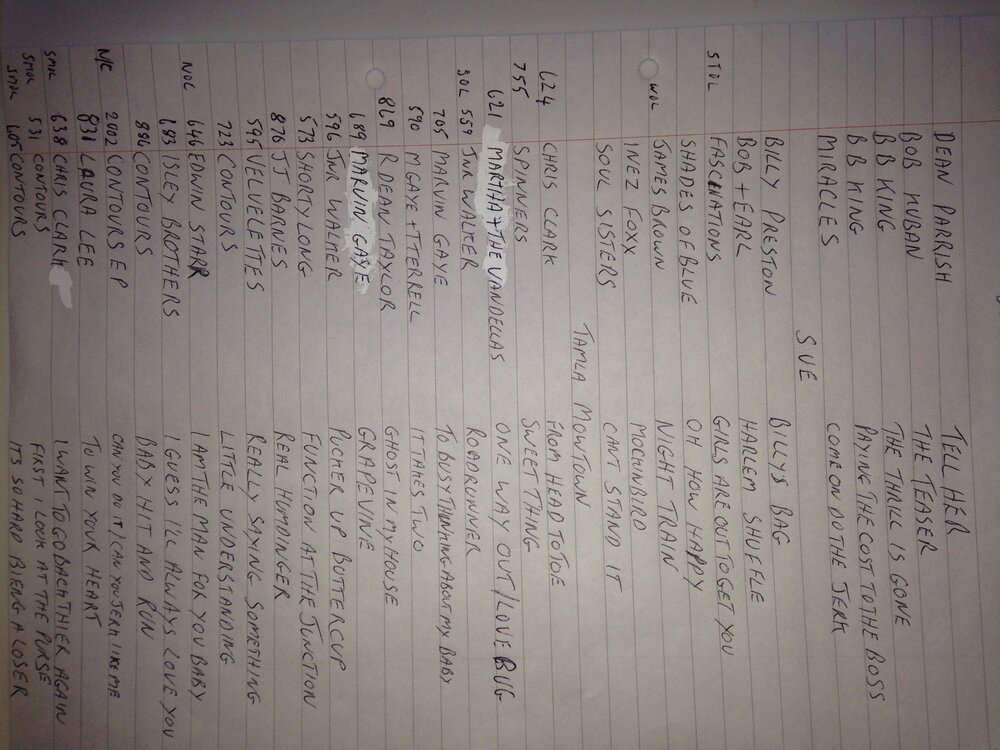 DEAN PARRISH TELL HER
BOB KUBAN THE TEASER
B B KING THE THRILL IS GONE
B B KING PAYING THE COST TO THE BOSS
MIRACLES COME ON DO THE JERK
SUE
BILLY PRESTON BILLYS BAG
BOB + EARL HARLEM SHUFFLE
STOL FASCINATIONS GIRLS ARE OUT TO GET YOU
SHADES OF BLUE OH HOW HAPPY
WOL JAMES BROWN NIGHT TRAIN
INEZ FOXX MOCKINBIRD
SOUL SISTERS CANT STAND IT
TAMLA MOWTOWN
624 CHRIS CLARK FROM HEAD TO TOE
755 SPINNERS SWEET THING
621 MARTHA + THE VANDELLAS ONE WAY OUT / LOVE BUG
SOL 559 JNR WALKER ROADRUNNER
705 MARVIN GAYE TO BUSY THINKING ABOUT MY BABY
590 M GAYE + T TERRELL IT TAKES TWO
869 R DEAN TAYLOR GHOST IN MY HOUSE
689 MARVIN GAYE GRAPEVINE
596 JNR WALKER PUCKER UP BUTTERCUP
573 SHORTY LONG FUNCTION AT THE JUNCTION
870 JJ BARNES REAL HUMDINGER
595 VELVELETTES REALLY SAYING SOMETHING
723 CONTOURS LITTLE UNDERSTANDING
NOL 646 EDWIN STARR I AM THE MAN FOR YOU BABY
683 ISLEY BROTHERS I GUESS I'LL ALWAYS LOVE YOU
886 CONTOURS BABY HIT AND RUN
N/C 2002 CONTOURS EP CAN YOU DO IT / CAN YOU JERK LIKE ME
831 LAURA LEE TO WIN YOUR HEART
SMOL 638 CHRIS CLARK I WANT TO GO BACK THIER AGAIN
SMOL 531 CONTOURS FIRST I LOOK AT THE PURSE
SMOL 605 CONTOURS ITS SO HARD BIENG A LOSER